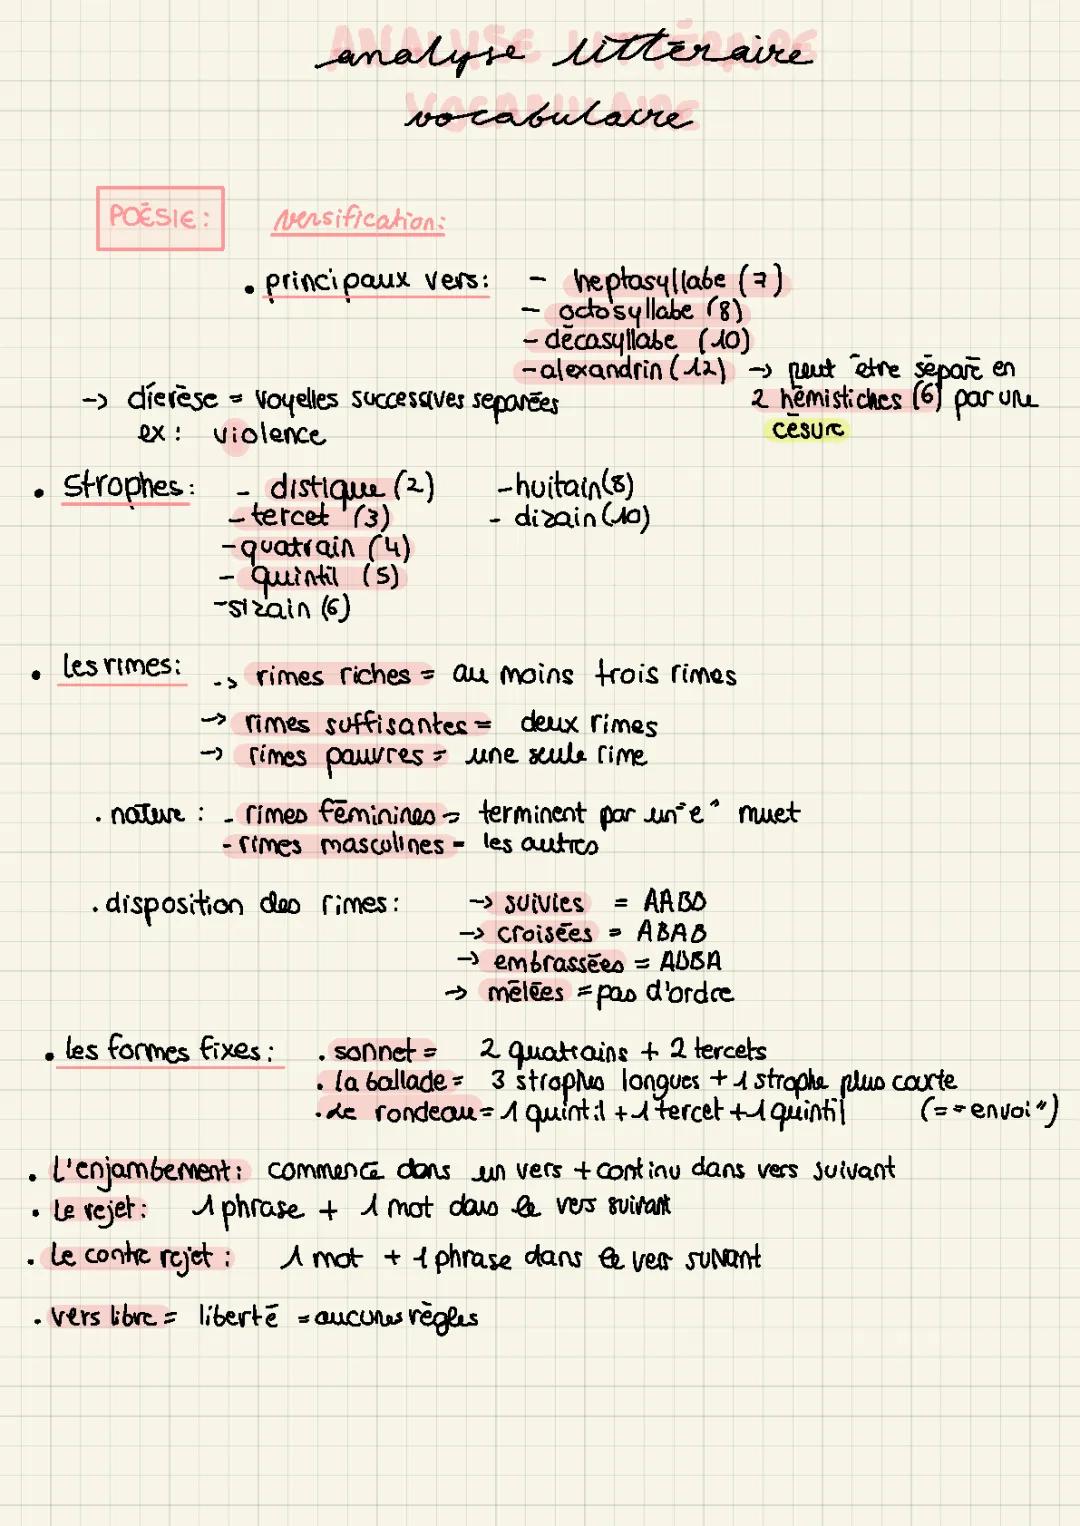 ANALYSE LITTÉRAIRE
analyse littéraire
VOCABULAIRE
vocabulaire
POÉSIE : versification:
• principaux vers: - heptasyllabe (7)
- octosyllabe (8)
- décasyllabe (10)
- alexandrin (12) → peut être séparé en
2 hémistiches (6) par une
césure
-> diérèse = voyelles successives séparées
ex : violence
• Strophes: - distique (2) - huitain (8)
- tercet (3) - dizain (10)
- quatrain (4)
- quintil (5)
- sizain (6)
• les rimes: -> rimes riches = au moins trois rimes
-> rimes suffisantes = deux rimes
-> rimes pauvres = une seule rime
. nature : - rimes féminines = terminent par un "e" muet
- rimes masculines = les autres
. disposition des rimes: -> suivies = AABB
-> croisées = ABAB
-> embrassées = ABBA
-> mêlées = pas d'ordre
• les formes fixes : . sonnet = 2 quatrains + 2 tercets
. la ballade = 3 strophes longues + 1 strophe plus courte
. Le rondeau = 1 quintil + 1 tercet + 1 quintil (= "envoi")
. L'enjambement : commence dans un vers + continu dans vers suivant
. Le rejet : 1 phrase + 1 mot dans le vers suivant
. Le contre rejet : 1 mot + 1 phrase dans le vers suivant
. vers libre = liberté = aucunes règles